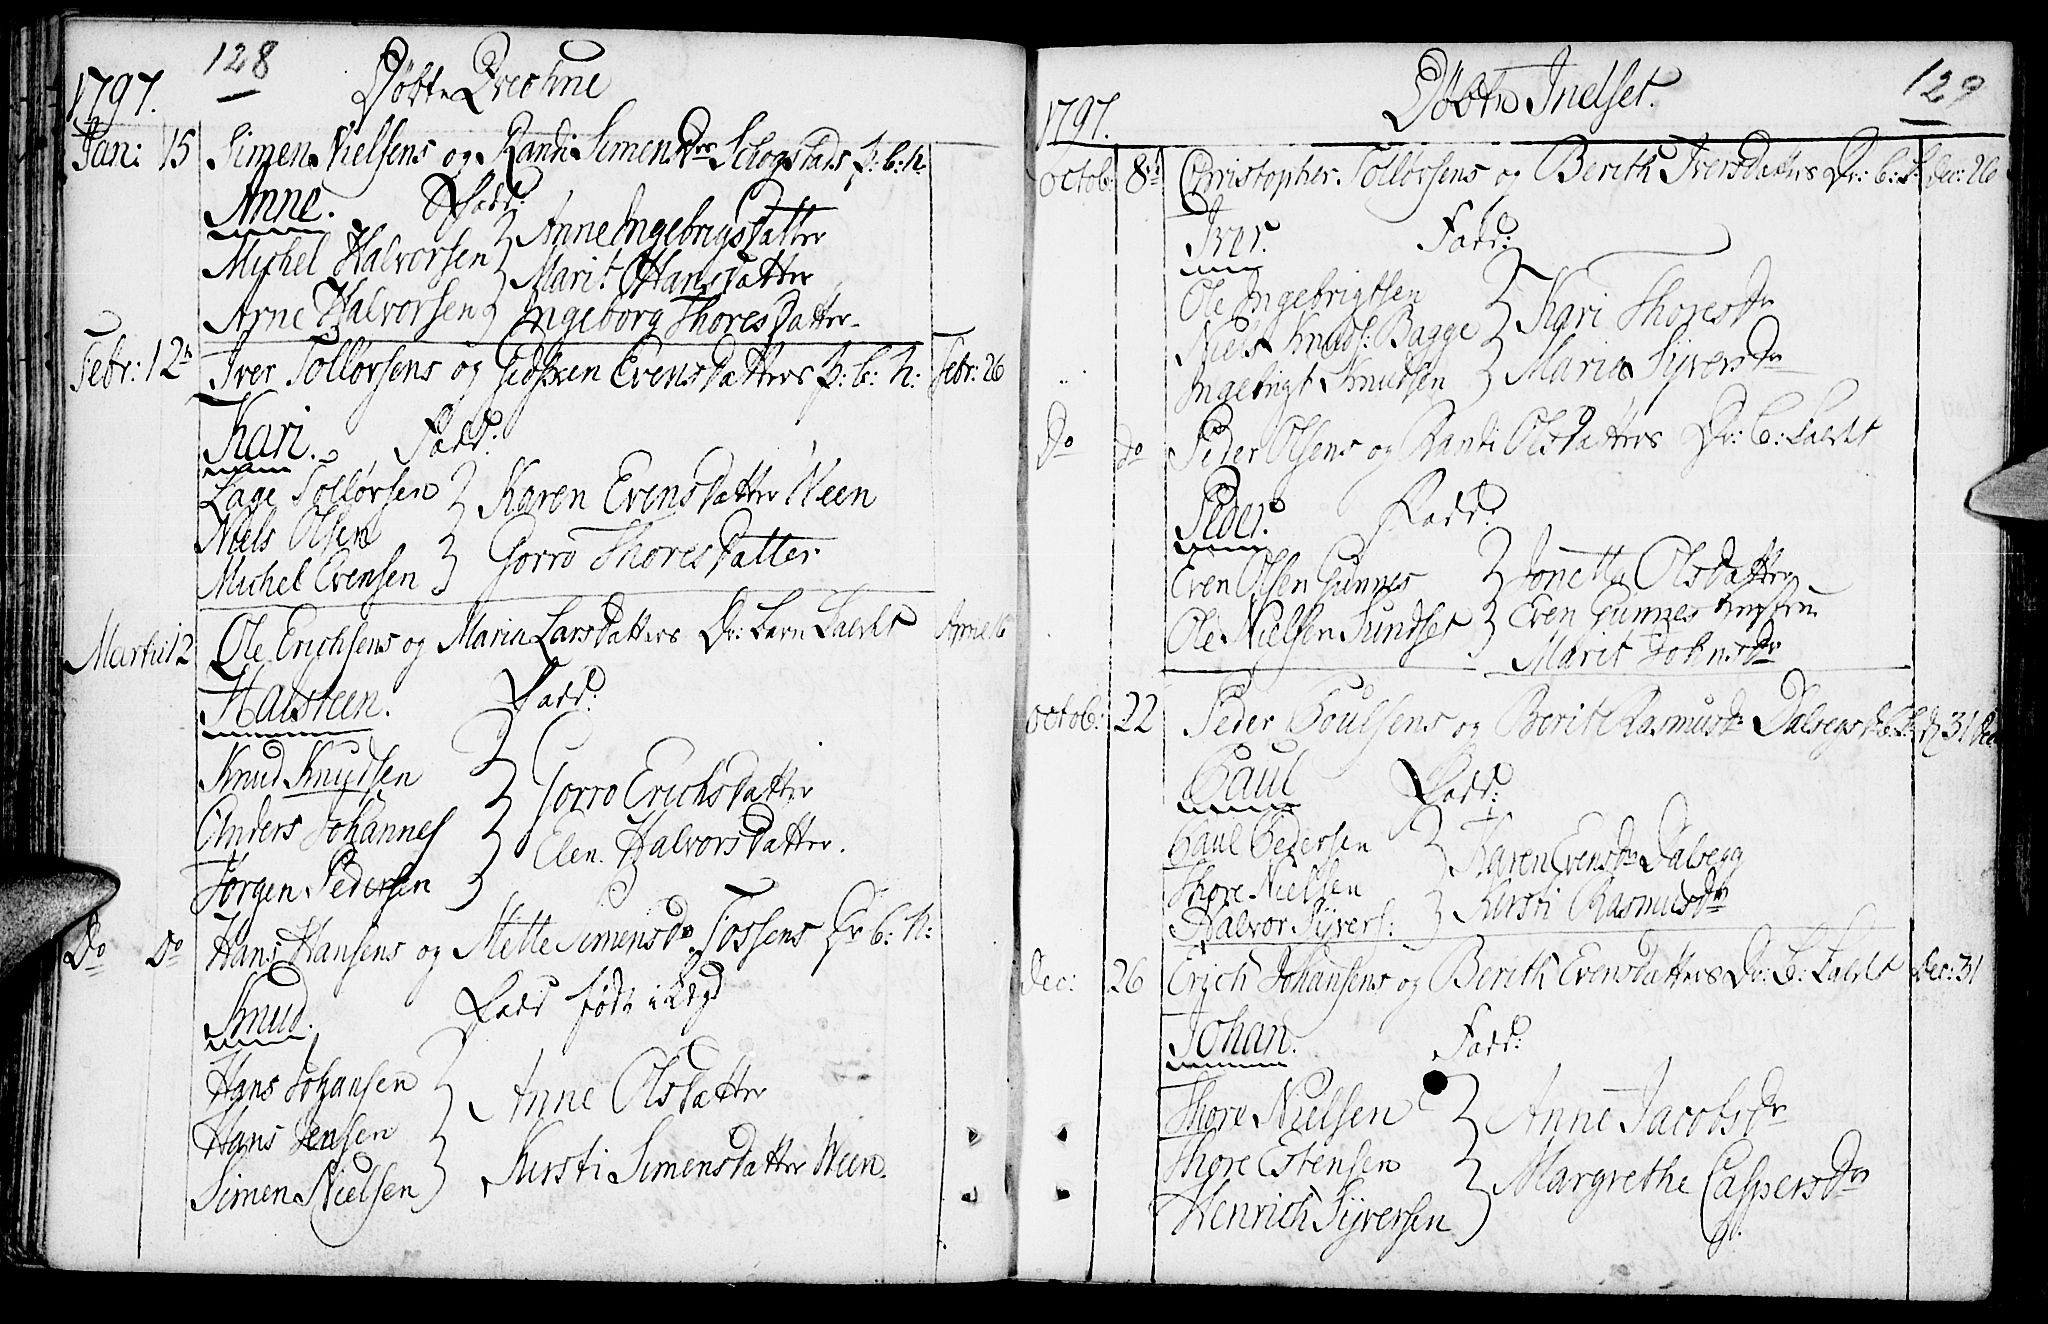 128
1797. Döbte Qvechne
Jan: 15 Simen Nielsens og Randi Simens Dtrs Schogstads p: b: n:
Anne. Fadd:
Michel Halvorsen Anne Ingebrigsdatter
Marit Hansdatter
Arne Halvorsen Ingeborg Thoresdatter
Febr: 12 Iver Tollørsens og Evensdatters p: b: n: Febr: 26
Kari. Fadd:
Lage Tollørsen Karen Evensdatter Neen
Niels Olsen
Michel Evensen Gorro Thoresdatter
Martii 12 Ole Erichsens og Maria Larsdatters Dr: Barn Kaldt
Halsteen. Fadd:
Knud Knudsen
Gorro Erichsdatter
Anders Johannes
Elen Halvorsdatter.
Jørgen Pedersen
Do Do Hans Hansens og Mette Simensdr Tossens Dr b: n:
Knud. Fadd født i
Hans Johansen Anne Olsdatter
Hans Jensen
Kirsti Simensdatter Neen.
Simen Nielsen
129
1797. Döbte Indset.
Octob: 8de Christopher Tollørsens og Berith Iversdatters Dr: b: Dec: 26
Iver. Fadd:
Ole Ingebrigtsen
Kari Thoresdr
Niels Knuds: Bagge
Maria Syversdr
Ingebrigt Knudsen
Do do Peder Olsens og Randi Olsdatters Dr: B: Kaldt
Peder. Fadd:
Even Olsen Gunnes Jonetta Olsdatter
Ole Nielsen Sundset Even Gunnes
Marit Johnsdr
Octob: 22 Peder Poulsens og Berit Rasmusdr Dalsegs 31 Dec
Paul Fadd:
Paul Pedersen
Karen Evensdr Dalsegg
Thore Nielsen
Kirsti Rasmusdr
Halvor Syvers:
Dec: 26 Erich Johansens og Berith Evensdatters Dr: B: Kaldt Dec: 31
Johan. Fadd:
Thore Nielsen Anne Jacobsdr
Thore Estensen
Margrethe Caspersdr
Henrich Syversen